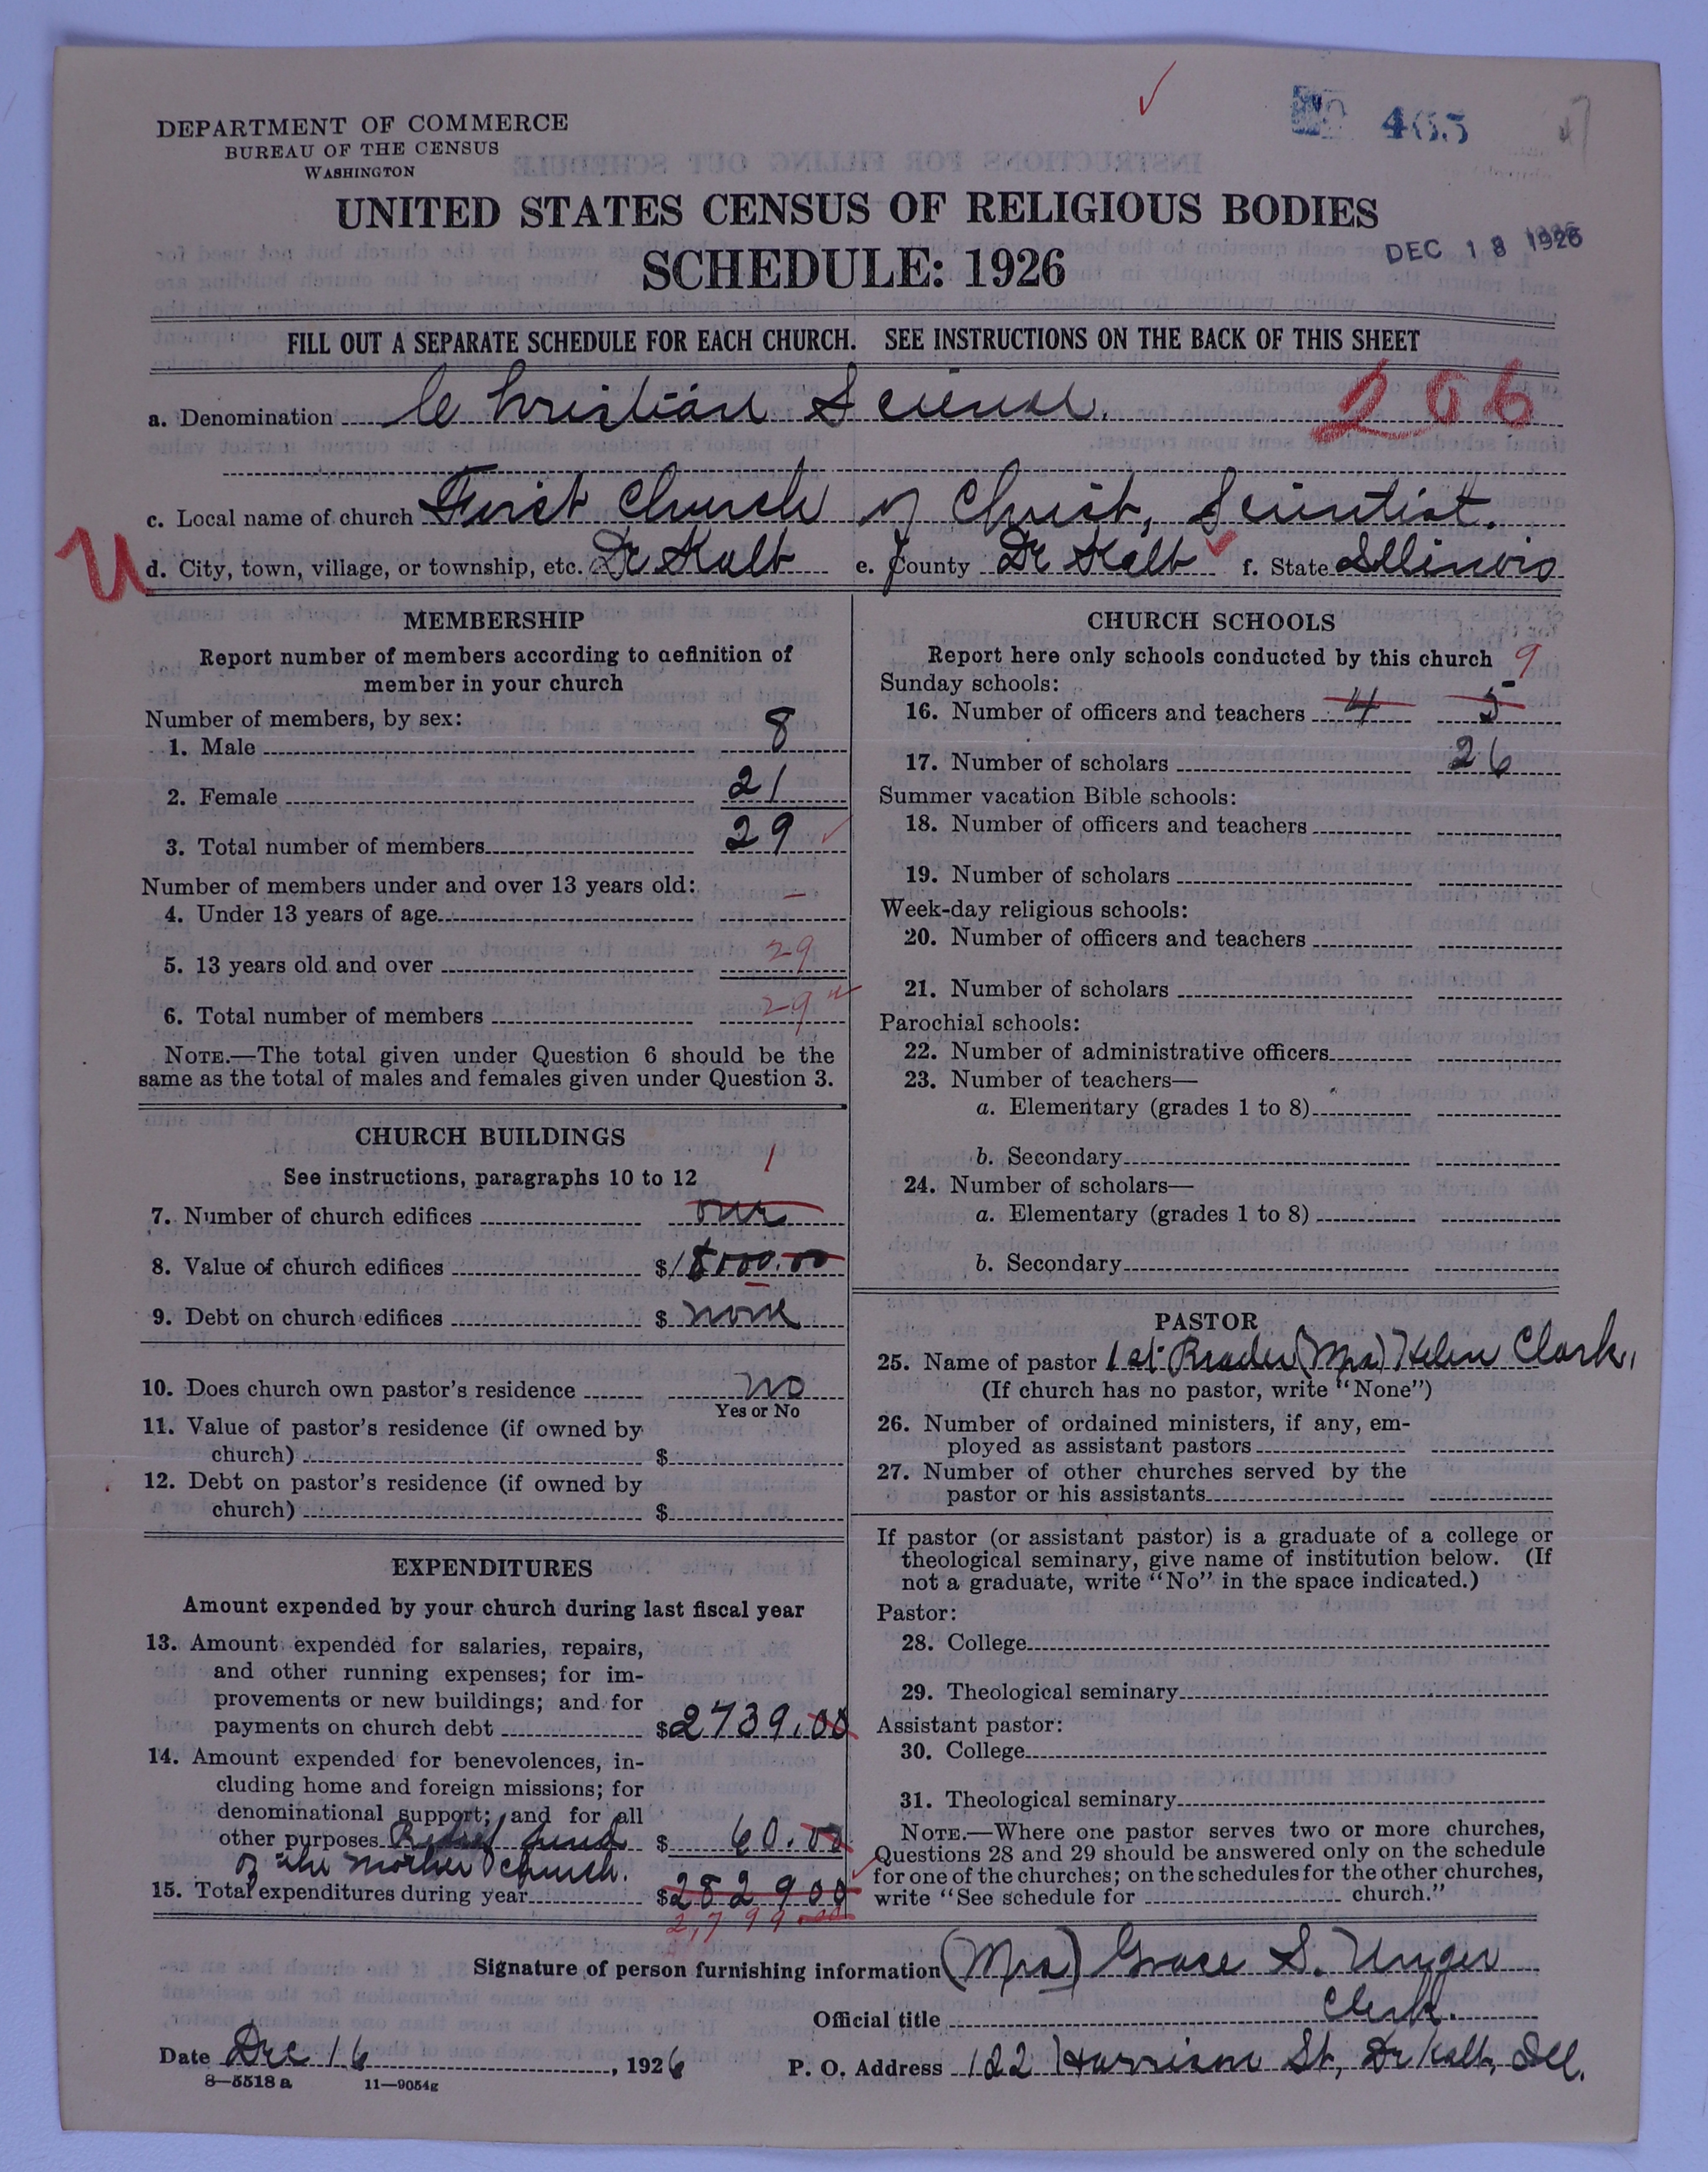 DEPARTMENT OF COMMERCE
BUREAU OF THE CENSUS
WASHINGTON
UNITED STATES CENSUS OF RELIGIOUS BODIES
DEC 18 1926
SCHEDULE: 1926
FILL OUT A SEPARATE SCHEDULE FOR EACH CHURCH. SEE INSTRUCTIONS ON THE BACK OF THIS SHEET
a. Denomination Christian Science. 206
c. Local name of church First Church of Christ, Scientist.
U d. City, town, village, or township, etc. De Kalb e. County De Kalb f. State Illinois
MEMBERSHIP
Report number of members according to definition of
member in your church
Number of members, by sex:
1. Male 8
2. Female 21
3. Total number of members 29
Number of members under and over 13 years old:
4. Under 13 years of age –
5. 13 years old and over 29
6. Total number of members 29
NOTE.—The total given under Question 6 should be the
same as the total of males and females given under Question 3.
CHURCH BUILDINGS
See instructions, paragraphs 10 to 12 1
7. Number of church edifices one
8. Value of church edifices $18000.00
9. Debt on church edifices $ none
10. Does church own pastor's residence no
Yes or No
11. Value of pastor's residence (if owned by
church) $
12. Debt on pastor's residence (if owned by
church) $
EXPENDITURES
Amount expended by your church during last fiscal year
13. Amount expended for salaries, repairs,
and other running expenses; for im-
provements or new buildings; and for
payments on church debt $2739.00
14. Amount expended for benevolences, in-
cluding home and foreign missions; for
denominational support; and for all
other purposes Relief fund $ 60.00
of the Mother Church.
15. Total expenditures during year $282900
2,799
CHURCH SCHOOLS
Report here only schools conducted by this church 9
Sunday schools:
16. Number of officers and teachers 4 5
17. Number of scholars 26
Summer vacation Bible schools:
18. Number of officers and teachers
19. Number of scholars
Week-day religious schools:
20. Number of officers and teachers
21. Number of scholars
Parochial schools:
22. Number of administrative officers
23. Number of teachers—
a. Elementary (grades 1 to 8)
b. Secondary
24. Number of scholars—
a. Elementary (grades 1 to 8)
b. Secondary
PASTOR
25. Name of pastor 1st Reader (Mrs) Helen Clark.
(If church has no pastor, write "None")
26. Number of ordained ministers, if any, em-
ployed as assistant pastors
27. Number of other churches served by the
pastor or his assistants
If pastor (or assistant pastor) is a graduate of a college or
theological seminary, give name of institution below. (If
not a graduate, write "No" in the space indicated.)
Pastor:
28. College
29. Theological seminary
Assistant pastor:
30. College
31. Theological seminary
NOTE.—Where one pastor serves two or more churches,
Questions 28 and 29 should be answered only on the schedule
for one of the churches; on the schedules for the other churches,
write "See schedule for church."
Signature of person furnishing information (Mrs) Grace S. Unger
Official title Clerk.
Date Dec 16, 1926 P. O. Address 122 Harrison St, De Kalb, Ill.
8—5518 a 11—9054g